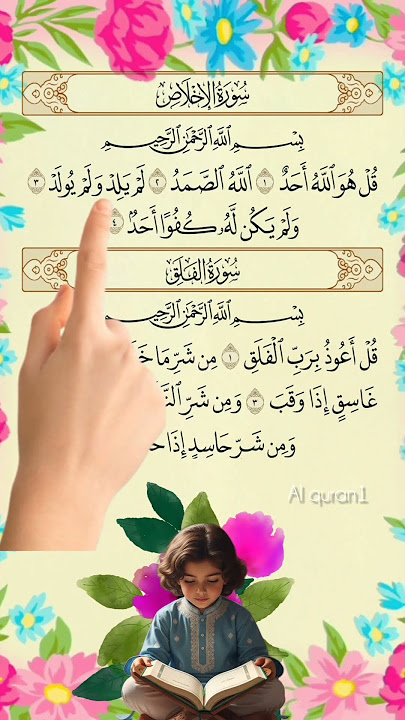 سُورَةُ الإِخْلَاصِ
بِسْمِ ٱللَّهِ ٱلرَّحْمَٰنِ ٱلرَّحِيمِ
قُلْ هُوَ ٱللَّهُ أَحَدٌ ١ ٱللَّهُ ٱلصَّمَدُ ٢ لَمْ يَلِدْ وَلَمْ يُولَدْ ٣
وَلَمْ يَكُن لَّهُۥ كُفُوًا أَحَدٌۢ ٤
سُورَةُ الفَلَقِ
بِسْمِ ٱللَّهِ ٱلرَّحْمَٰنِ ٱلرَّحِيمِ
قُلْ أَعُوذُ بِرَبِّ ٱلْفَلَقِ ١ مِن شَرِّ مَا
غَاسِقٍ إِذَا وَقَبَ ٣ وَمِن شَرِّ
وَمِن شَرِّ حَاسِدٍ إِذَا
Al quran1